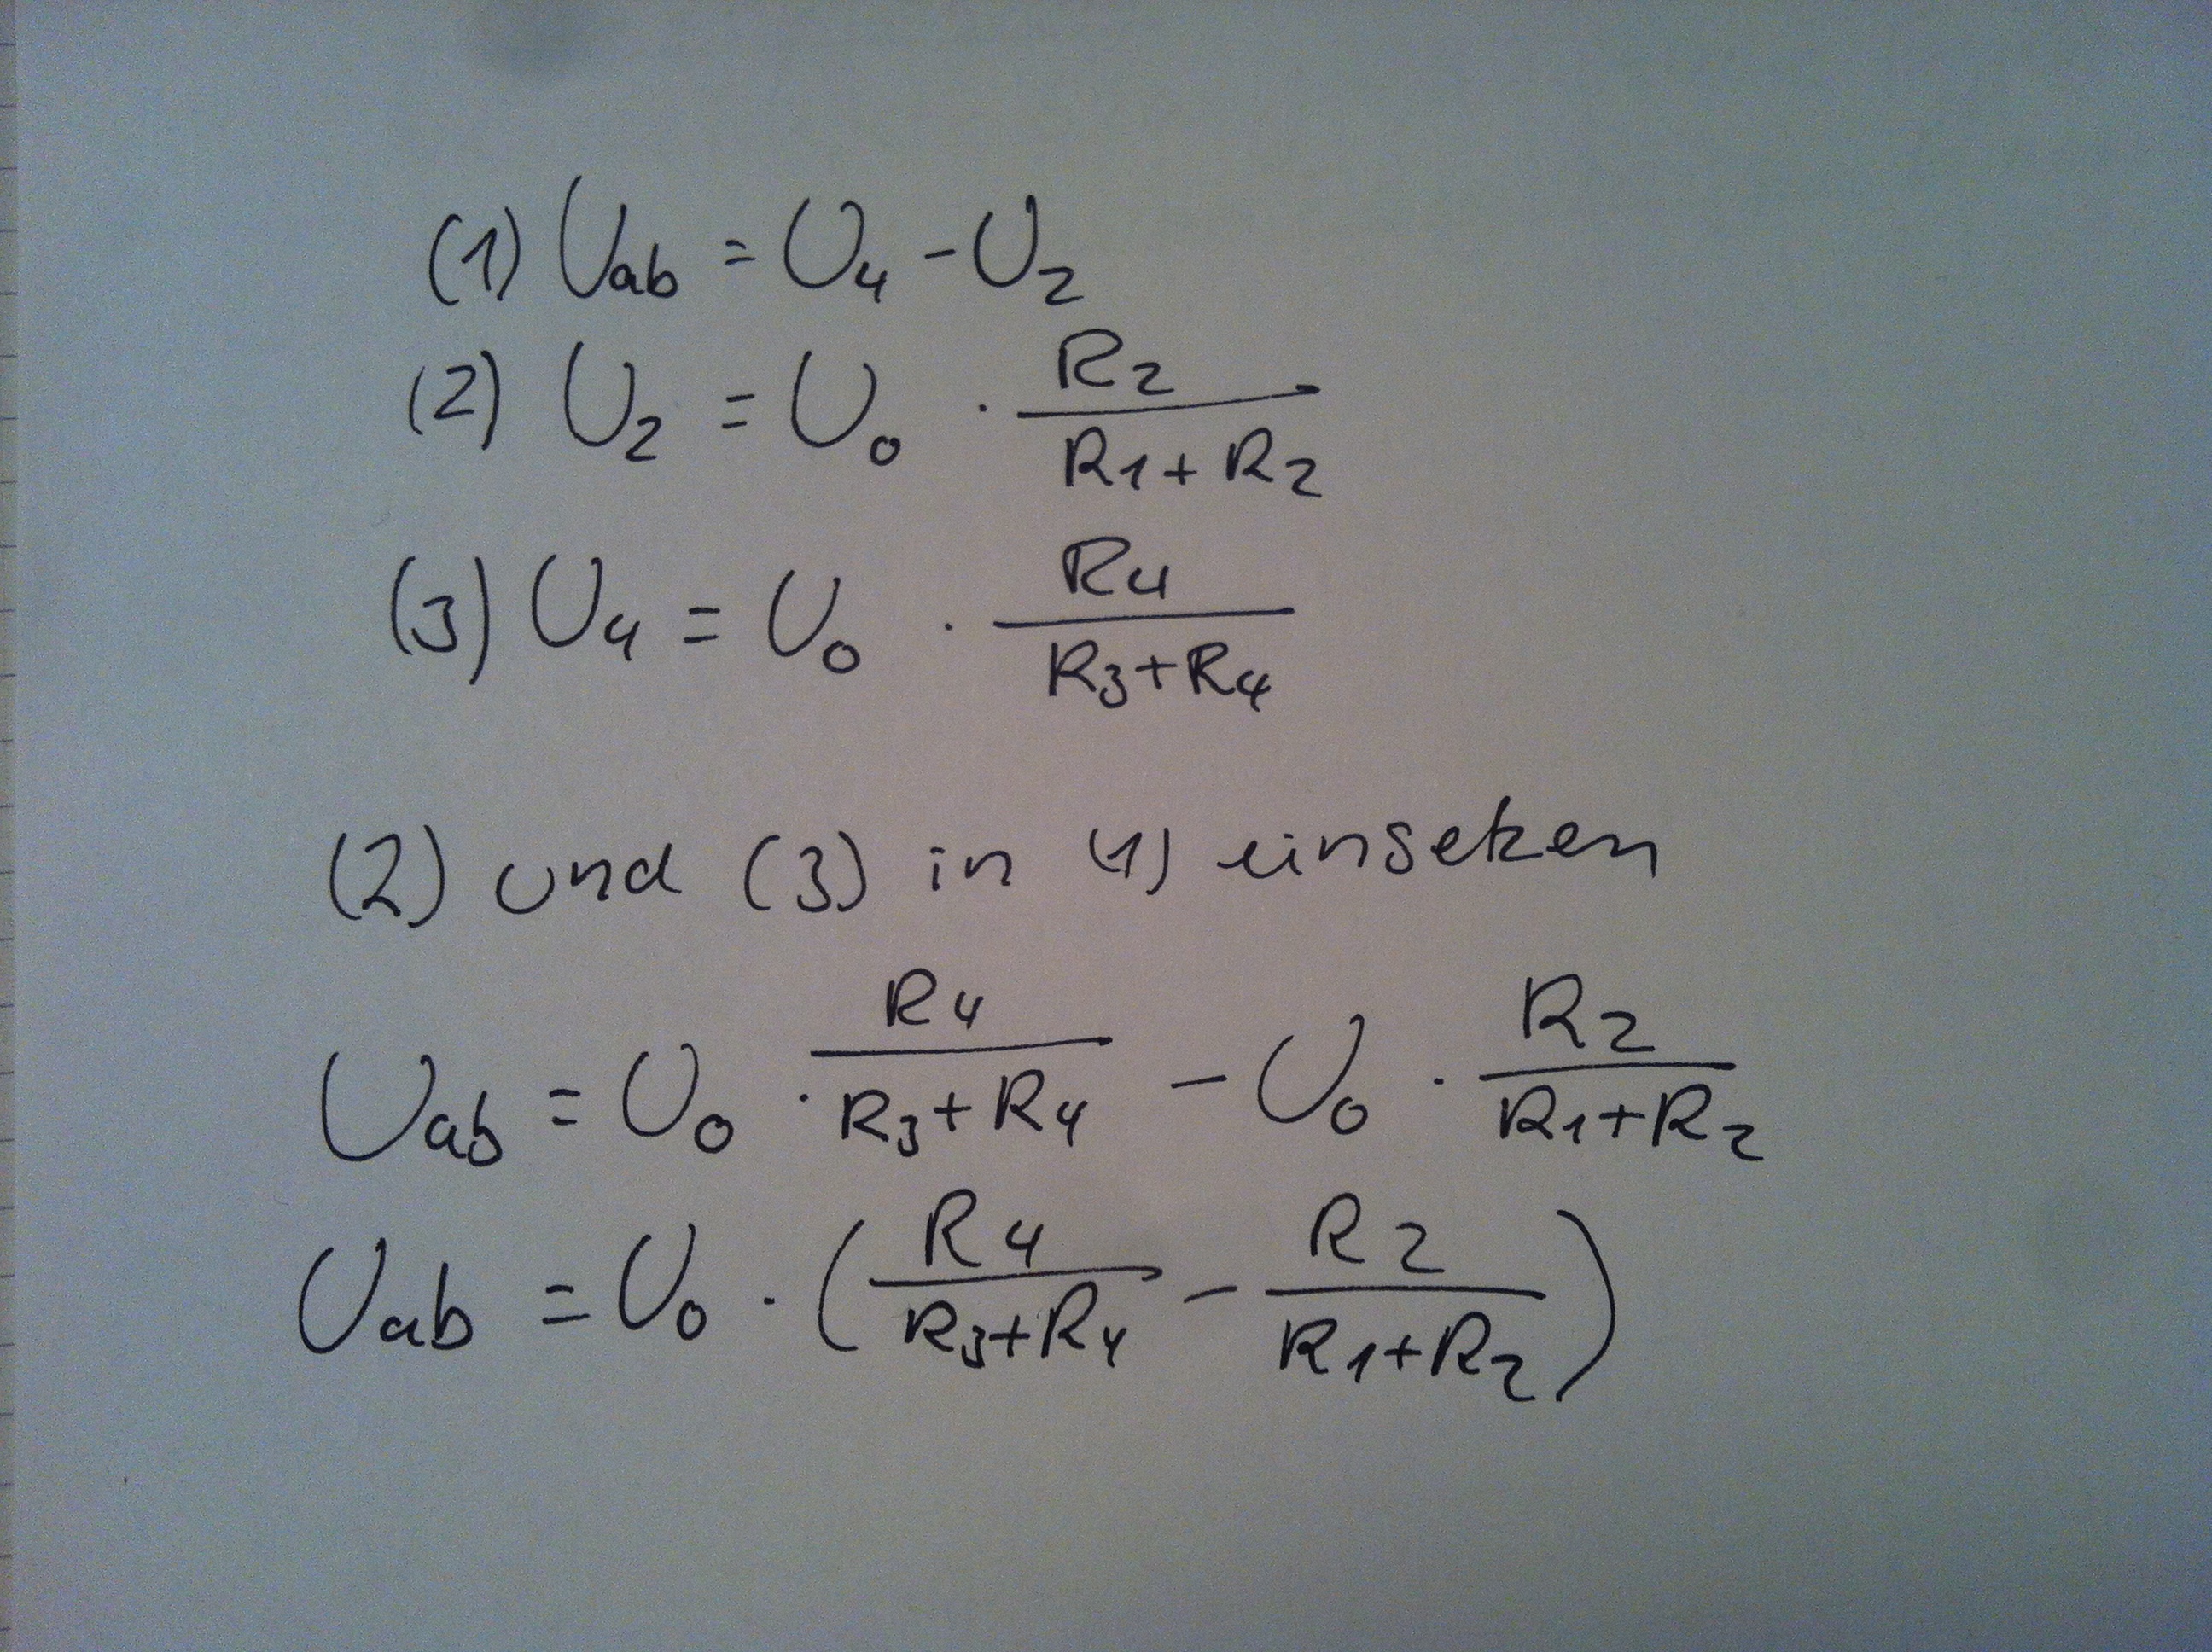 (1) U_ab = U_4 - U_2
(2) U_2 = U_0 · R_2 / (R_1 + R_2)
(3) U_4 = U_0 · R_4 / (R_3 + R_4)
(2) und (3) in (1) einsetzen
U_ab = U_0 · R_4 / (R_3 + R_4) - U_0 · R_2 / (R_1 + R_2)
U_ab = U_0 · ( R_4 / (R_3 + R_4) - R_2 / (R_1 + R_2) )